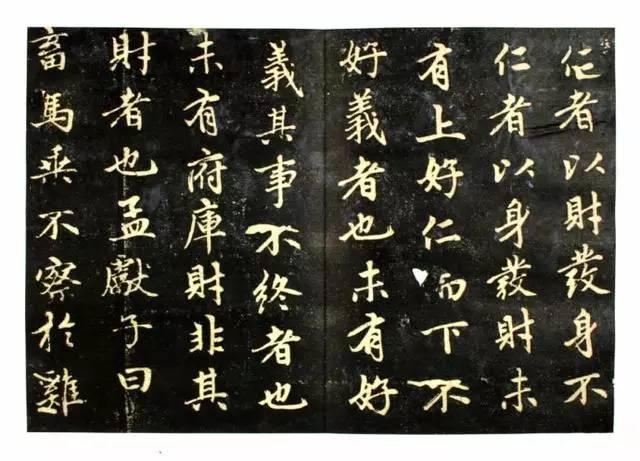 仁者以財發身不
仁者以身發財未
有上好仁而下不
好義者也未有好
義其事不終者也
未有府庫財非其
財者也孟獻子曰
畜馬乘不察於雞